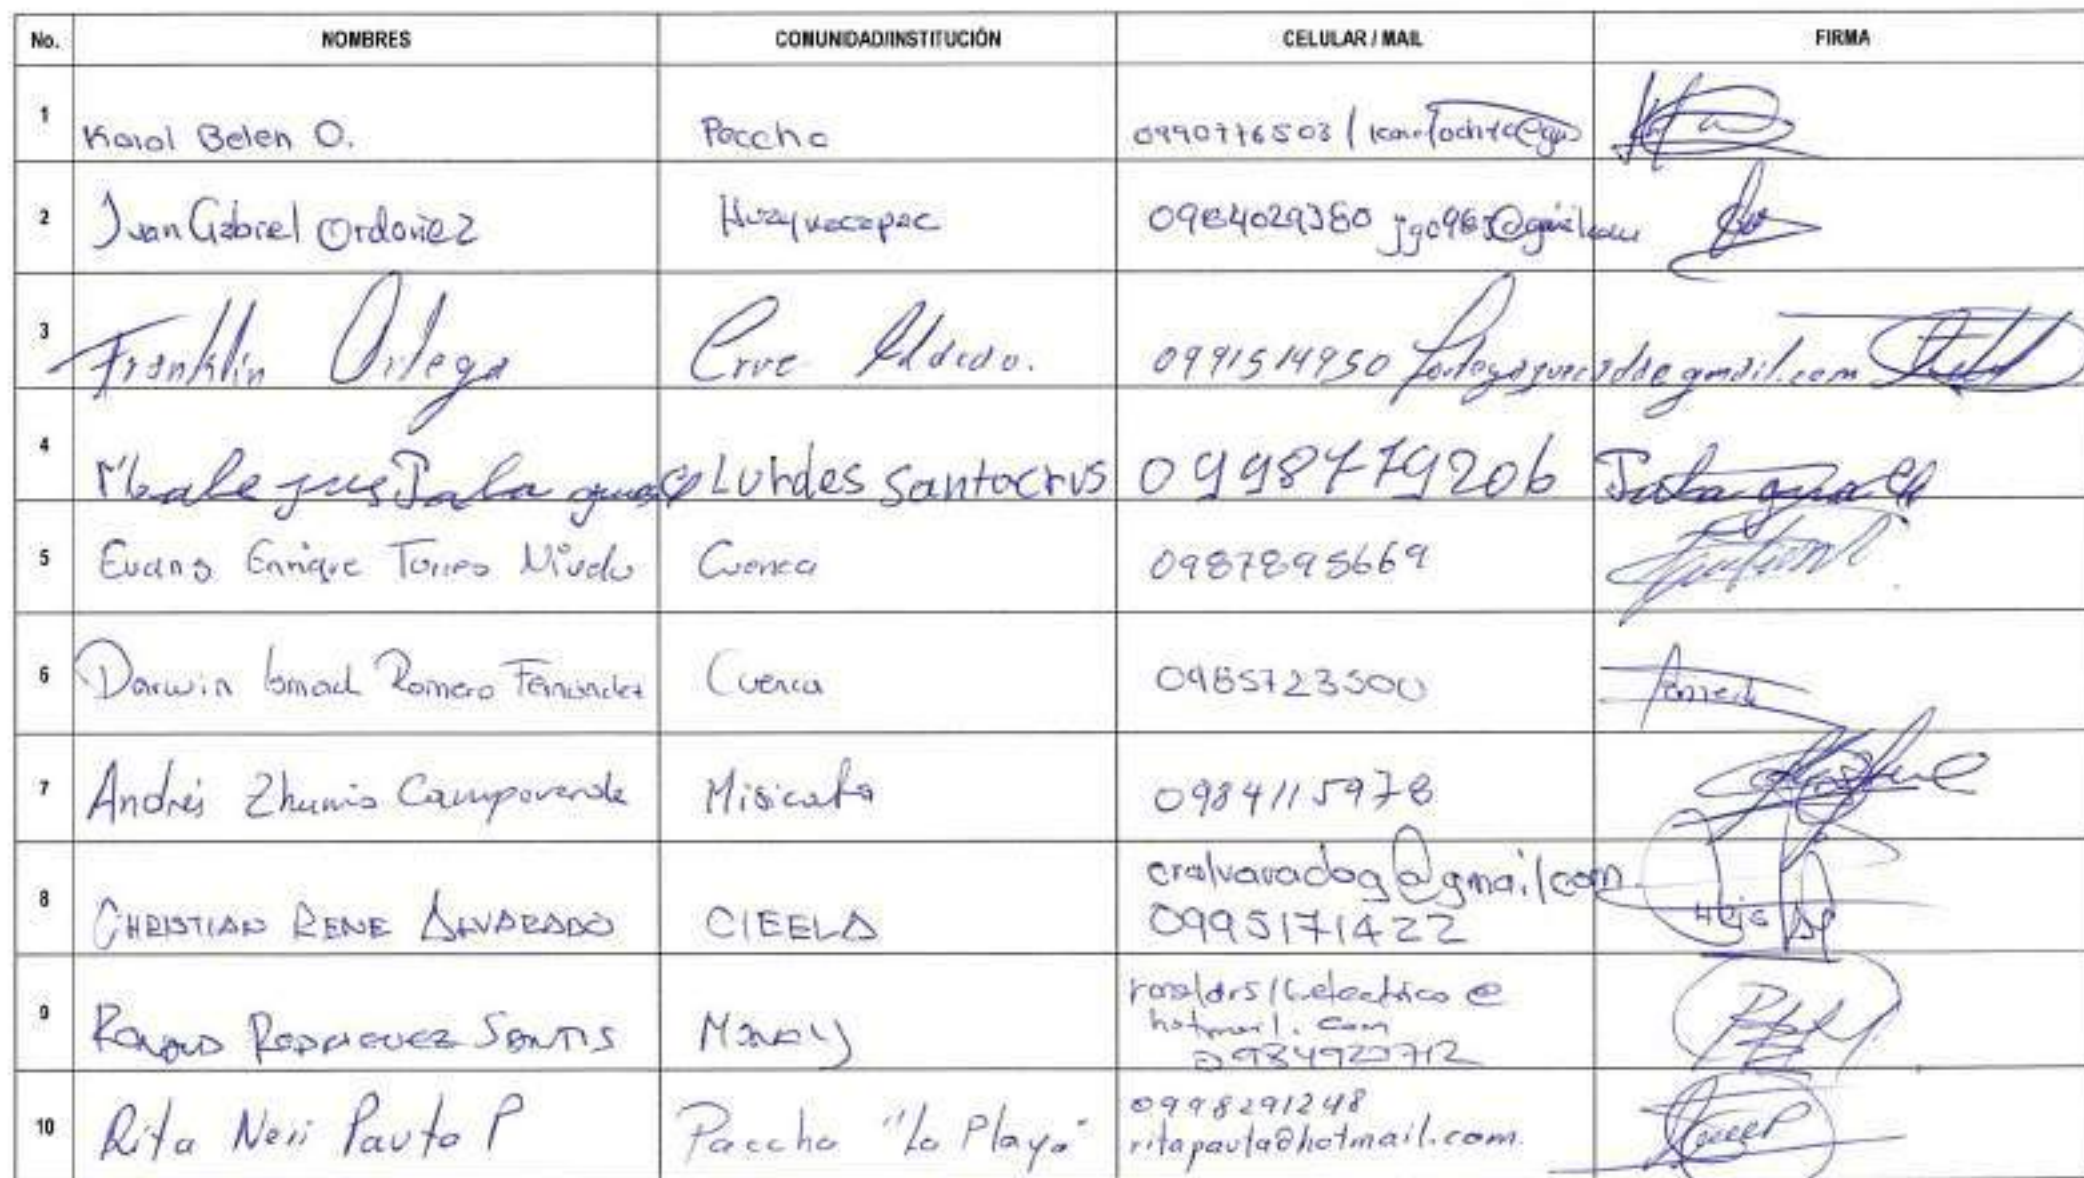 No. NOMBRES COMUNIDAD/INSTITUCIÓN CELULAR / MAIL FIRMA
1 Karol Belen O. Paccha 0990776503 /
2 Juan Gabriel Ordoñez Huaynacapac 0984029380
3 Franklin Ortega Cruz 0991514950
4 Lurdes Santacrus 0998779206
5 Evans Enrique Torres Cuenca 0987895669
6 Darwin Ismael Romero Fernandez Cuenca 0985723500
7 Andrés Zhunio Campoverde Misicata 0984115978
8 CHRISTIAN RENE ALVARADO CIEELA cralvaradog@gmail.com
0995171422
9 RODRIGUEZ hotmail.com
10 Rita Neri Pauta P Paccha "La Playa" 0998291248
ritapauta@hotmail.com.